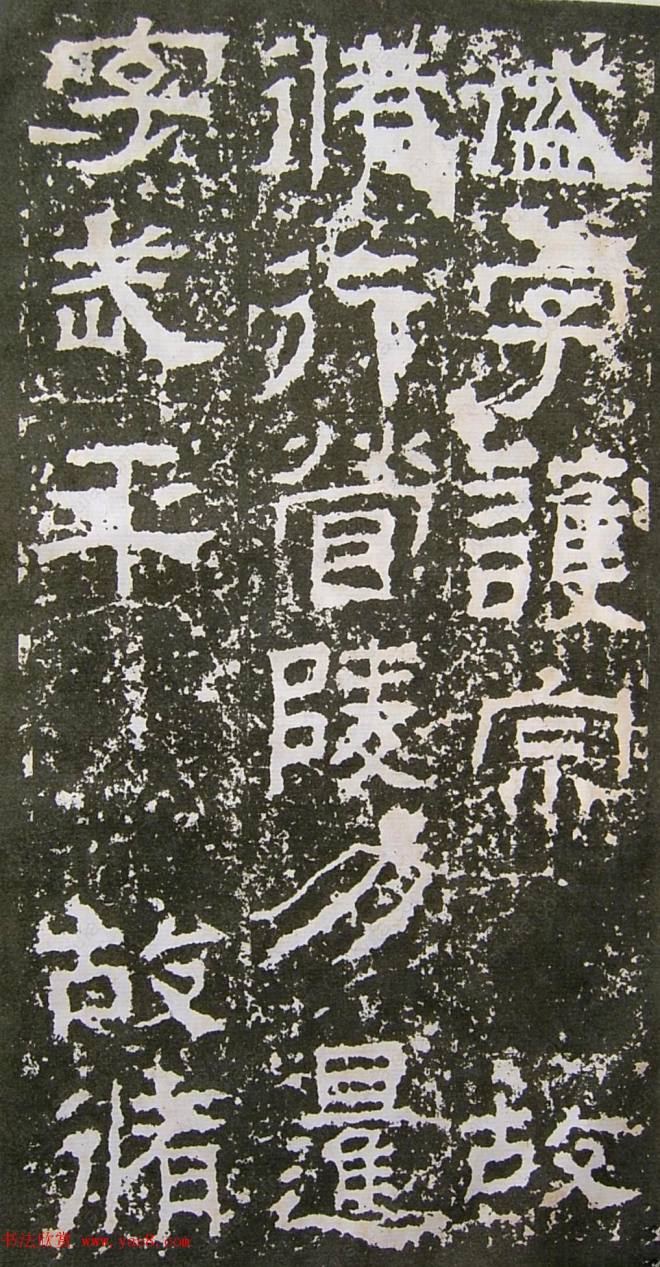 謐字護宗 故
脩行營陵暹
字武平 故脩
书法欣赏 www.yac8.com